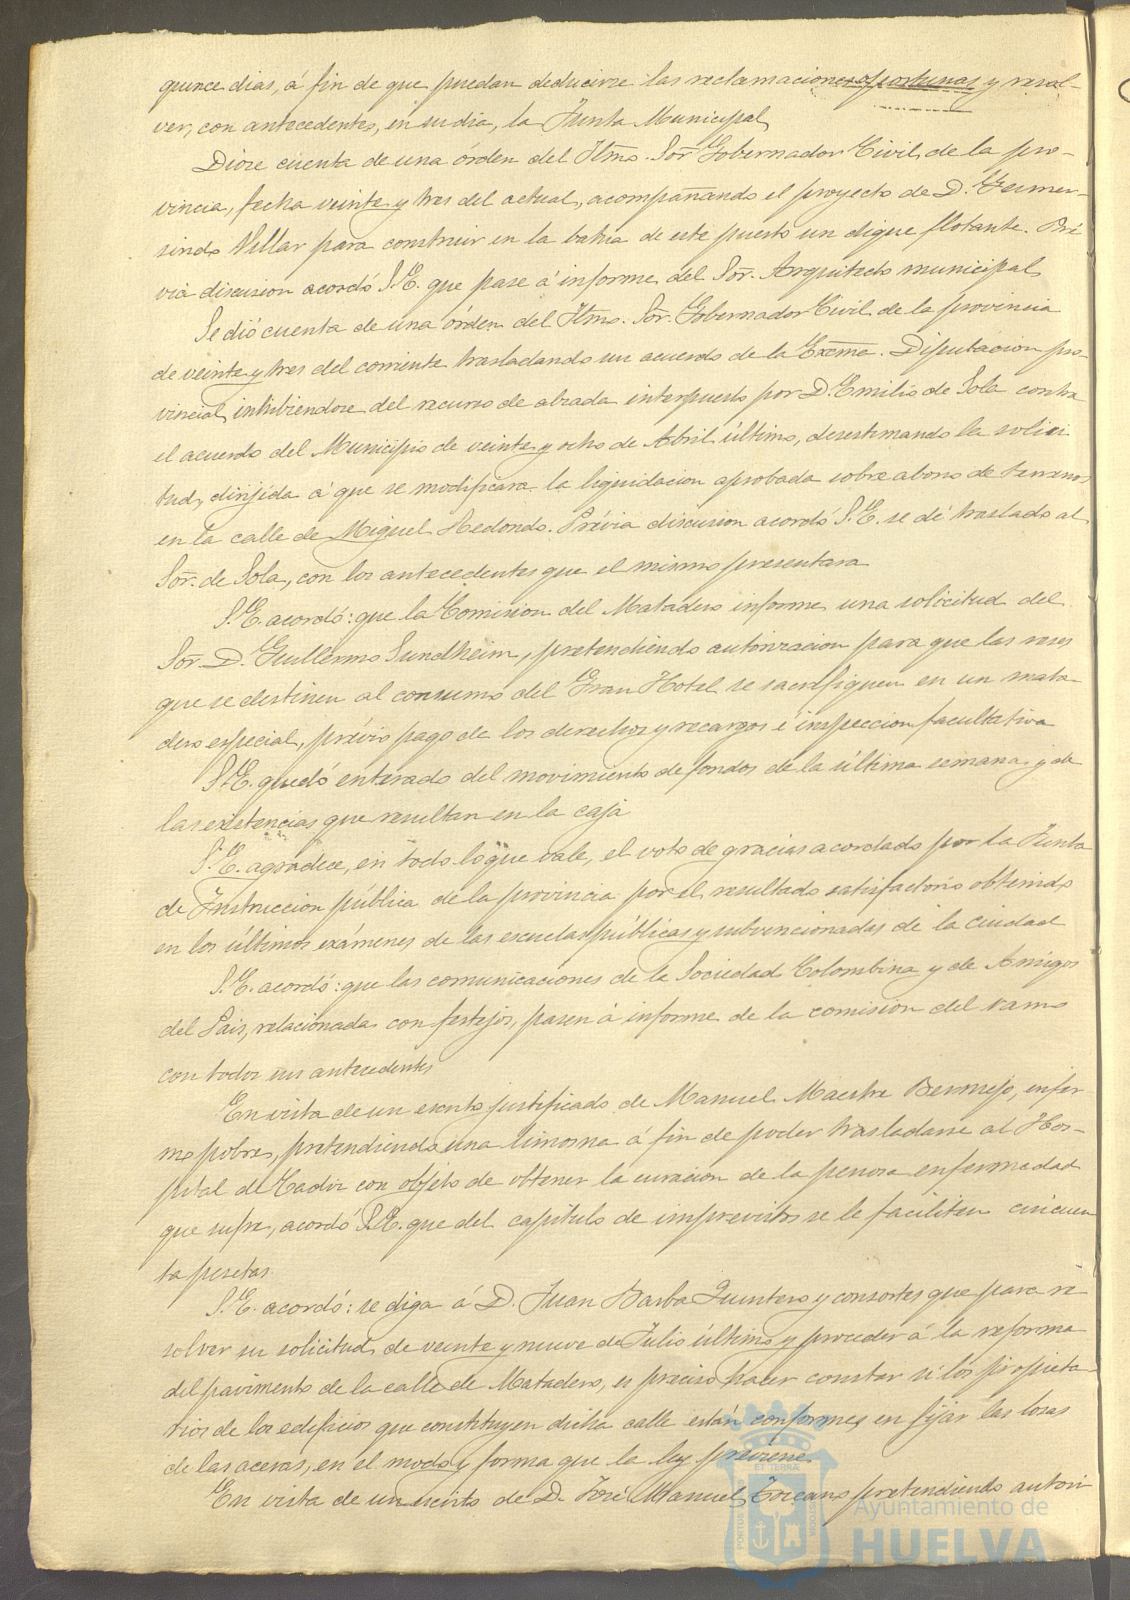 quince dias, á fin de que puedan deducirse las reclamaciones oportunas y resol-
ver, con antecedentes, en su dia, la Junta Municipal
Dióse cuenta de una órden del Iltmo. Sor. Gobernador Civil de la pro-
vincia, fecha veinte y tres del actual, acompañando el proyecto de D.
sindo Villar para construir en la bahia de este puerto un dique flotante. Pré
via discusion acordó S.E. que pase á informe del Sor. Arquitecto municipal
Se dió cuenta de una órden del Iltmo. Sor. Gobernador Civil de la provincia
de veinte y tres del corriente trasladando un acuerdo de la Excma. Diputacion pro-
vincial, inhibiendose del recurso de alzada interpuesto por D. Emilio de Sola contra
el acuerdo del Municipio de veinte y ocho de Abril último, desestimando la solici
tud, dirijida á que se modificara la liquidacion aprobada sobre abono de terrenos
en la calle de Miguel Redondo. Prévia discusion acordó S.E. se dé traslado al
Sor. de Sola, con los antecedentes que el mismo presentara
S.E. acordó: que la Comision del Matadero informe una solicitud del
Sor. D. Guillermo Sundheim, pretendiendo autorizacion para que las reses
que se destinen al consumo del Gran Hotel se sacrifiquen en un mata-
dero especial, prévio pago de los derechos y recargos é inspeccion facultativa
S.E. quedó enterado del movimiento de fondos de la última semana y de
las existencias que resultan en la caja
S.E. agradece, en todo lo que vale, el voto de gracias acordado por la Junta
de Instruccion pública de la provincia por el resultado satisfactorio obtenido
en los últimos exámenes de las escuelas públicas y subvencionadas de la ciudad
S.E. acordó: que las comunicaciones de la Sociedad Colombina y de Amigos
del Pais, relacionadas con festejos, pasen á informe de la comision del ramo
con todos sus antecedentes
En vista de un escrito justificado de Manuel Maestre Bermejo, enfer
mo pobre, pretendiendo una limosna á fin de poder trasladarse al Hos-
pital de Cadiz con objeto de obtener la curacion de la penosa enfermedad
que sufre, acordó S.E. que del capitulo de imprevistos se le faciliten cincuen
ta pesetas.
S.E. acordó: se diga á D. Juan Barba Quintero y consortes que para re
solver su solicitud de veinte y nueve de Julio último y proceder á la reforma
del pavimento de la calle de Matadero, es preciso hacer constar si los propieta
rios de los edificios que constituyen dicha calle están conformes en fijar las losas
de las aceras, en el modo y forma que la ley previene
En vista de un escrito de D. José Manuel Toscano pretendiendo autori
Ayuntamiento de
HUELVA